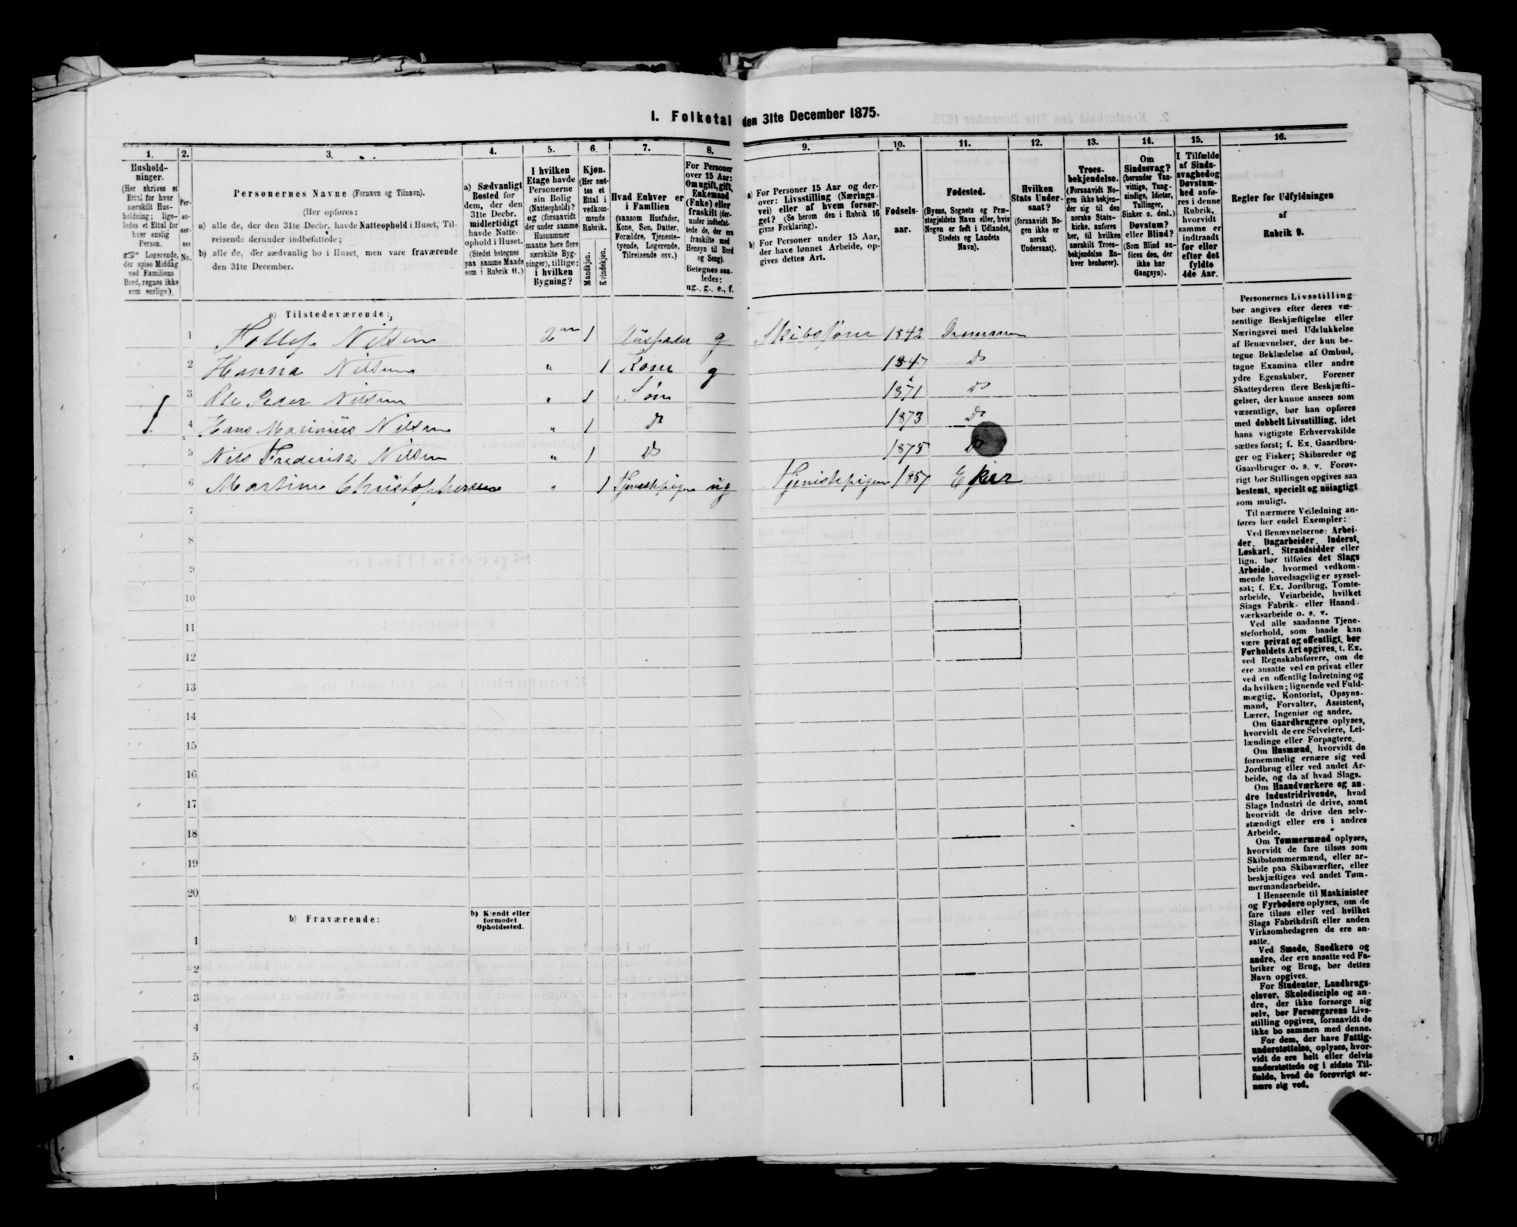 1. Folketal den 31te December 1875.
1. 2. 3. 4. 5. 6. 7. 8. 9. 10. 11. 12. 13. 14. 15. 16.
Hushold-
ninger.
(Her skrives et
Ettal for hver
særskilt Hus-
holdning; lige-
ledes et Ettal for
hver enslig
Person.
Logerende,
der spise Middag
ved Familiens
Bord, regnes ikke
som enslige).
Per-
so-
ner-
nes
No.
Personernes Navne (Fornavn og Tilnavn).
(Her opføres:
a) alle de, der den 31te Decbr. havde Natteophold i Huset, Til-
reisende derunder indbefattede;
b) alle de, der sædvanlig bo i Huset, men vare fraværende
den 31te December.
a) Sædvanligt
Bosted for
dem, der den
31te Decbr.
midlertidigt
havde Natte-
ophold i Huset.
(Stedet betegnes
paa samme Maade
som i Rubrik 11.)
I hvilken
Etage havde
Personerne
sin Bolig
(Natteophold)?
og (forsaavidt
der under samme
Husnummer
maatte høre flere
særskilte Byg-
ninger), tillige:
i hvilken
Bygning?
Kjøn.
(Her sæt-
tes et
Ettal i
vedkom-
mende
Rubrik.
Mandkjøn.
Kvindekjøn.
Hvad Enhver er
i Familien
(saasom Husfader,
Kone, Søn, Datter,
Forældre, Tjeneste-
tyende, Logerende,
Tilreisende osv.)
For Personer
over 15 Aar:
Om ugift, gift,
Enkemand
(Enke) eller
fraskilt (der-
under indbefat-
tede de, der ere
fraskilte med
Hensyn til Bord
og Seng).
Betegnes saa-
ledes:
ug., g., e., f.
a) For Personer 15 Aar og der-
over: Livsstilling (Nærings-
vei) eller af hvem forsør-
get? (Se herom den i Rubrik 16
givne Forklaring).
b) For Personer under 15 Aar,
der have lønnet Arbeide, op-
gives dettes Art.
Fødsels-
aar.
Fødested.
(Byens, Sognets og Præ-
stegjeldets Navn eller, hvis
Nogen er født i Udlandet,
Stedets og Landets
Navn).
Hvilken
Stats Under-
saat?
(forsaavidt No-
gen ikke er
norsk
Undersaat).
Troes-
bekjendelse.
(Forsaavidt No-
gen ikke bekjen-
der sig til den
norske Stats-
kirke, anføres
her, til hvilken
særskilt Troes-
bekjendelse En-
hver henhører).
Om
Sindssvag?
(herunder Van-
vittige, Tung-
sindige, Idioter,
Tullinger,
Sinker o. desl.)
Døvstum?
eller Blind?
(Som Blind an-
føres den, der
ikke har
Gangsyn).
I Tilfælde
af Sinds-
svaghed og
Døvstum-
hed anfø-
res i denne
Rubrik,
hvorvidt
samme er
indtraadt
før eller
efter det
fyldte
4de Aar.
Regler for Udfyldningen
af
Rubrik 9.
a) Tilstedeværende:
1 Nilsen 2 1 Husfader g Skibsfører 1842 Drammen
2 Hanna Nilsen „ 1 Kone g 1847 Do
3 Ole Peder Nilsen „ 1 Søn 1871 Do
1 4 Hans Marinius Nilsen „ 1 Do 1873 Do
5 Nils Frederik Nilsen „ 1 Do 1875 Do
6 Martine Christophersen „ 1 Tjenestepige ug Tjenestepige 1857 Eker
7
8
9
10
11
12
13
14
15
16
17
18
19
20
b) Fraværende:
b) Kjendt eller
formodet
Opholdssted.
1
2
3
4
5
6
Personernes Livsstilling
bør angives efter deres væ-
sentlige Beskjæftigelse eller
Næringsvei med Udelukkelse
af Benævnelser, der kun be-
tegne Beklædelse af Ombud,
tagne Examina eller andre
ydre Egenskaber. Forener
Skatteyderen flere Beskjæfti-
gelser, der kunne ansees som
væsentlige, bør han opføres
med dobbelt Livsstilling, idet
hans vigtigste Erhvervskilde
sættes først; f. Ex. Gaardbru-
ger og Fisker; Skibsreder og
Gaardbruger o. s. v. Forøv-
rigt bør Stillingen opgives saa
bestemt, specielt og nøiagtigt
som muligt.
Til nærmere Veiledning an-
føres her endel Exempler:
Ved Benævnelserne: Arbei-
der, Dagarbeider, Inderst,
Løskarl, Strandsidder eller
lign. bør tilføies det Slags
Arbeide, hvormed vedkom-
mende hovedsagelig er syssel-
sat; f. Ex. Jordbrug, Tomte-
arbeide, Veiarbeide, hvilket
Slags Fabrik- eller Haand-
værksarbeide o. s. v.
Ved alle saadanne Tjene-
steforhold, som baade kan
være privat og offentligt, bør
Forholdets Art opgives, t. Ex.
ved Regnskabsførere, om de
ere ansatte ved en privat eller
ved en offentlig Indretning og
da hvilken; lignende ved Fuld-
mægtig, Kontorist, Opsyns-
mand, Forvalter, Assistent,
Lærer, Ingeniør og andre.
Om Gaardbrugere oplyses,
hvorvidt de ere Selveiere, Lei-
lændinge eller Forpagtere.
Om Husmænd, hvorvidt de
fornemmelig ernære sig ved
Jordbrug eller ved andet Ar-
beide, og da af hvad Slags.
Om Haandværkere og an-
dre Industridrivende, hvad
Slags Industri de drive, samt
hvorvidt de drive den selv-
stændigt eller ere i andres
Arbeide.
Om Tømmermænd oplyses,
hvorvidt de fare tilsøs som
Skibstømmermænd, eller ar-
beide paa Skibsværfter, eller
beskjæftiges ved andet Tøm-
mermandsarbeide.
I Henseende til Maskinister
og Fyrbødere oplyses, om de
fare tilsøs eller ved hvilket
Slags Fabrikdrift eller anden
Virksomhed de ere an-
satte.
Ved Smede, Snedkere og
andre, der ere ansatte ved Fa-
briker og Brug, bør dettes
Navn opgives.
For Studenter, Landbrugs-
elever, Skoledisciple og an-
dre, der ikke forsørge sig
selv, bør Forsørgerens Livs-
stilling opgives, forsaavidt de
ikke bo sammen med denne.
For dem, der have Fattig-
understøttelse, oplyses, hvor-
vidt de ere helt eller delvis
understøttede og i sidste Til-
fælde, hvad de forøvrigt er-
nære sig ved.